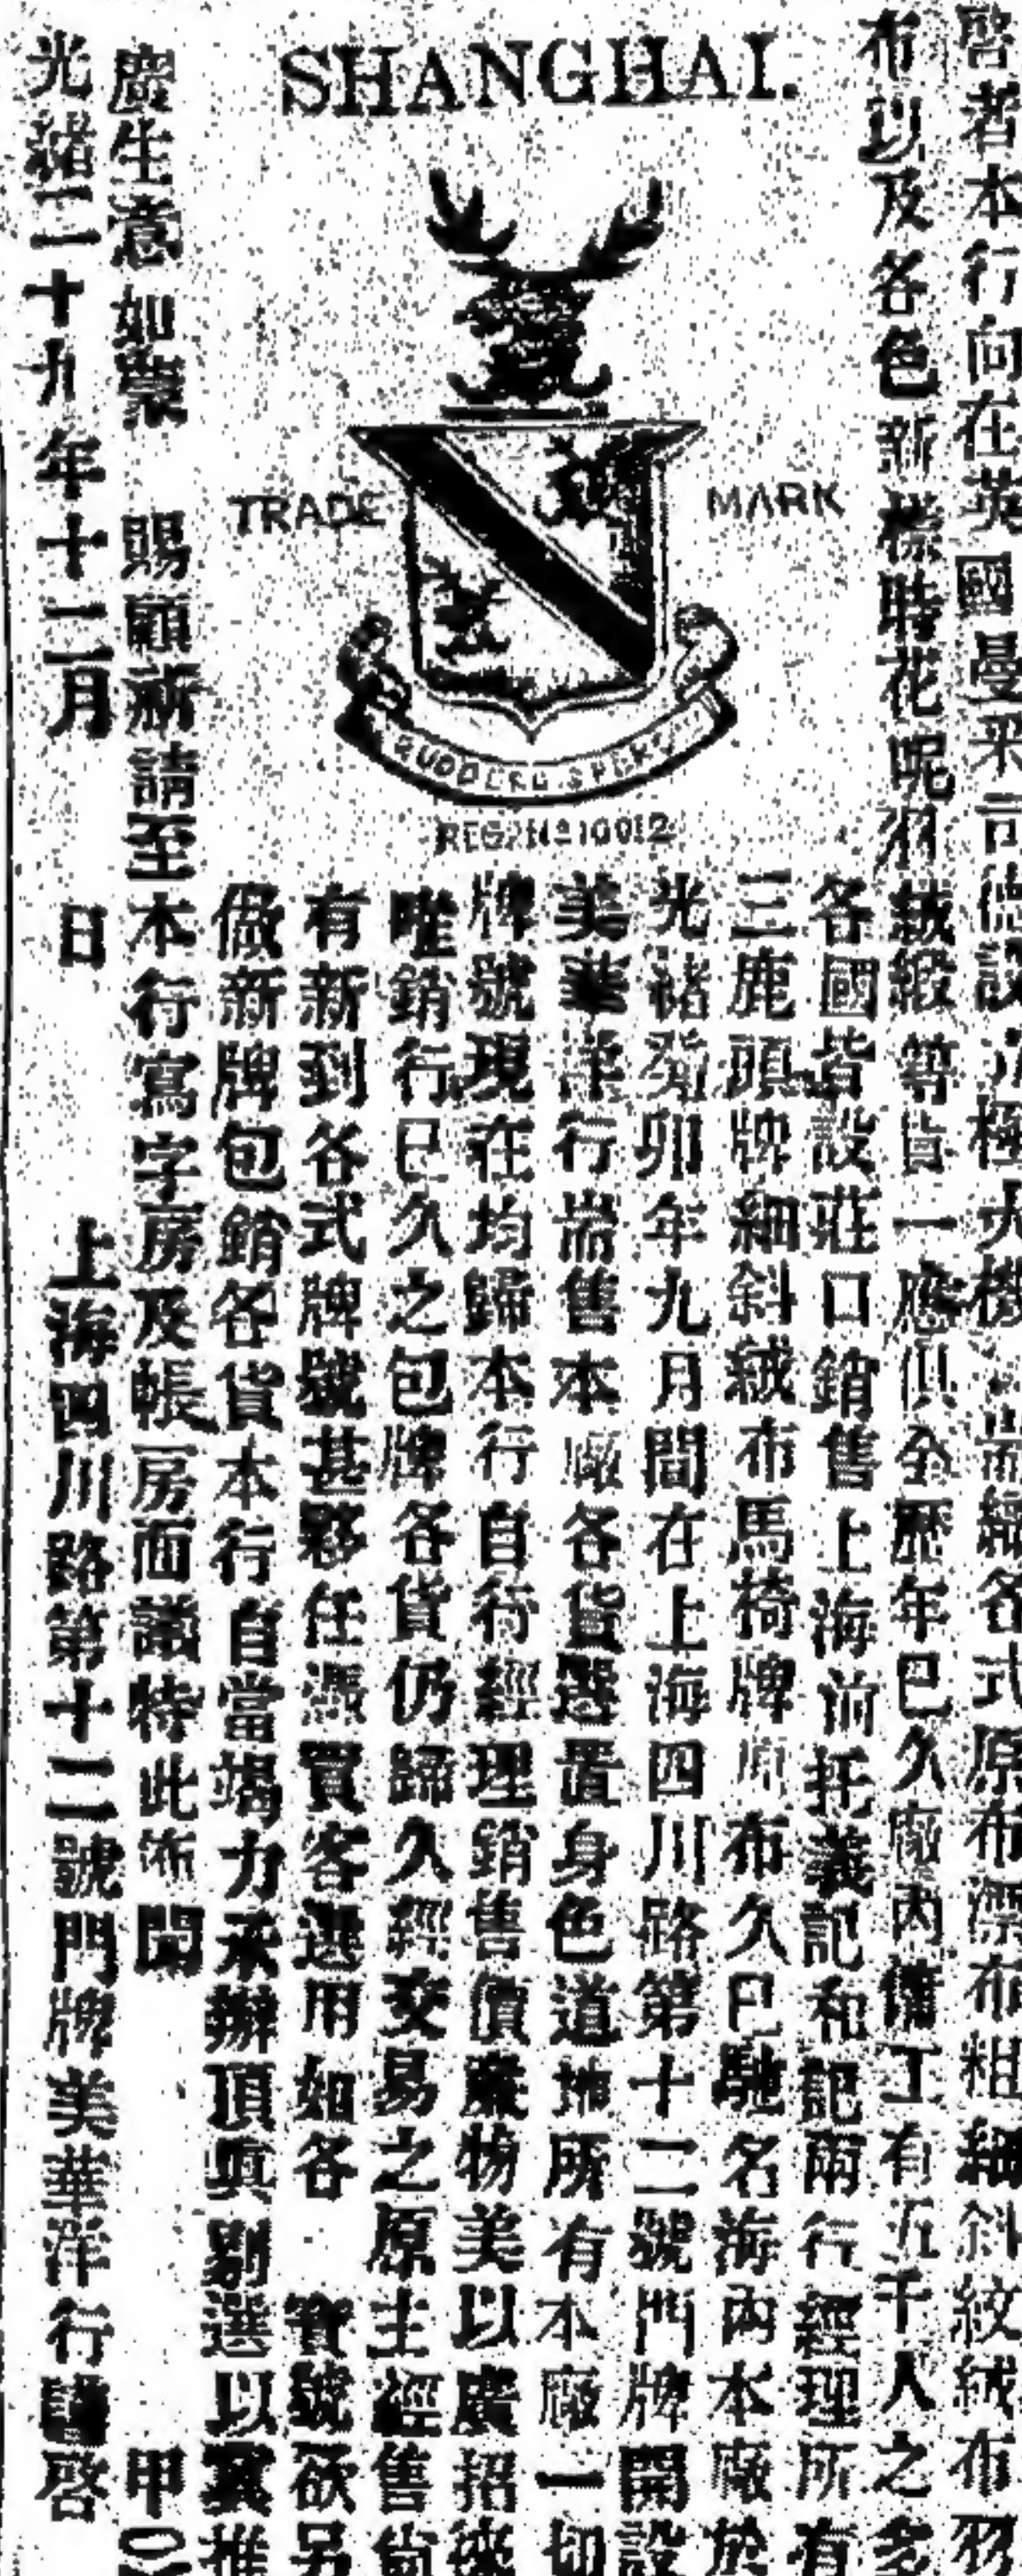 啓者本行向在英國曼釆司德設立極大機
織各式原布漂布粗細斜紋絨布羽
布以及各色新樣時花呢羽絨緞等貨一應俱全歷年巳久廠內傭工有五千人之多
各國皆設莊口銷售上海前托義記和記兩行經理所有
三鹿頭牌細斜絨布馬椅牌原布久巳馳名海內本廠於
光緒癸卯年九月間在上海四川路第十二號門牌開設
美華洋行耑售本廠各貨選置身色道地所有本廠一切
牌號現在均歸本行自行經理銷售價廉物美以廣招徠
唯銷行巳久之包牌各貨仍歸久經交易之原主經售尙
有新到各式牌號甚夥任憑買客選用如各 寶號欲另
做新牌包銷各貨本行自當竭力承辦頂眞剔選以冀推
SHANGHAI.
TRADE MARK
REG. No 10012
慶生意如蒙 賜顧祈請至本行寫字房及帳房面議特此佈聞 甲
光緒二十九年十二月 日 上海四川路第十二號門牌美華洋行謹啓